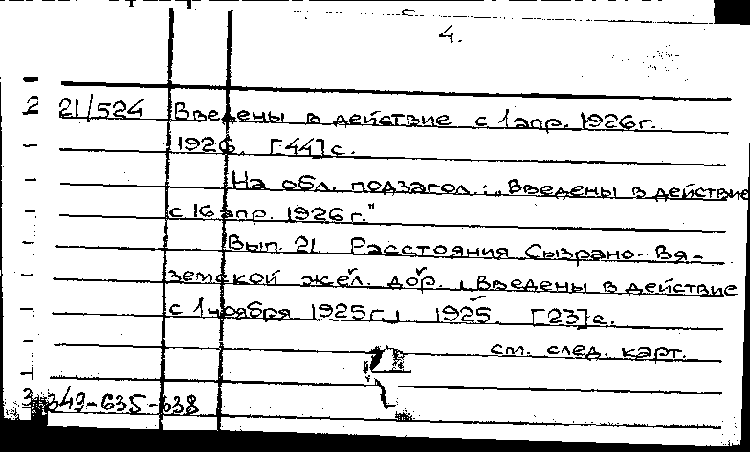 4.
21/524 Введены в действие с 1 апр. 1926г.
1926. [44] с.
На обл. подзагол.: „Введены в действие
с 16 апр. 1926 г."
Вып. 21 Расстояния Сызрано-Вя-
земской жел. дор. „Введены в действие
с 1 ноября 1925 г." 1925. [23] с.
см. след. карт.
349-635-638